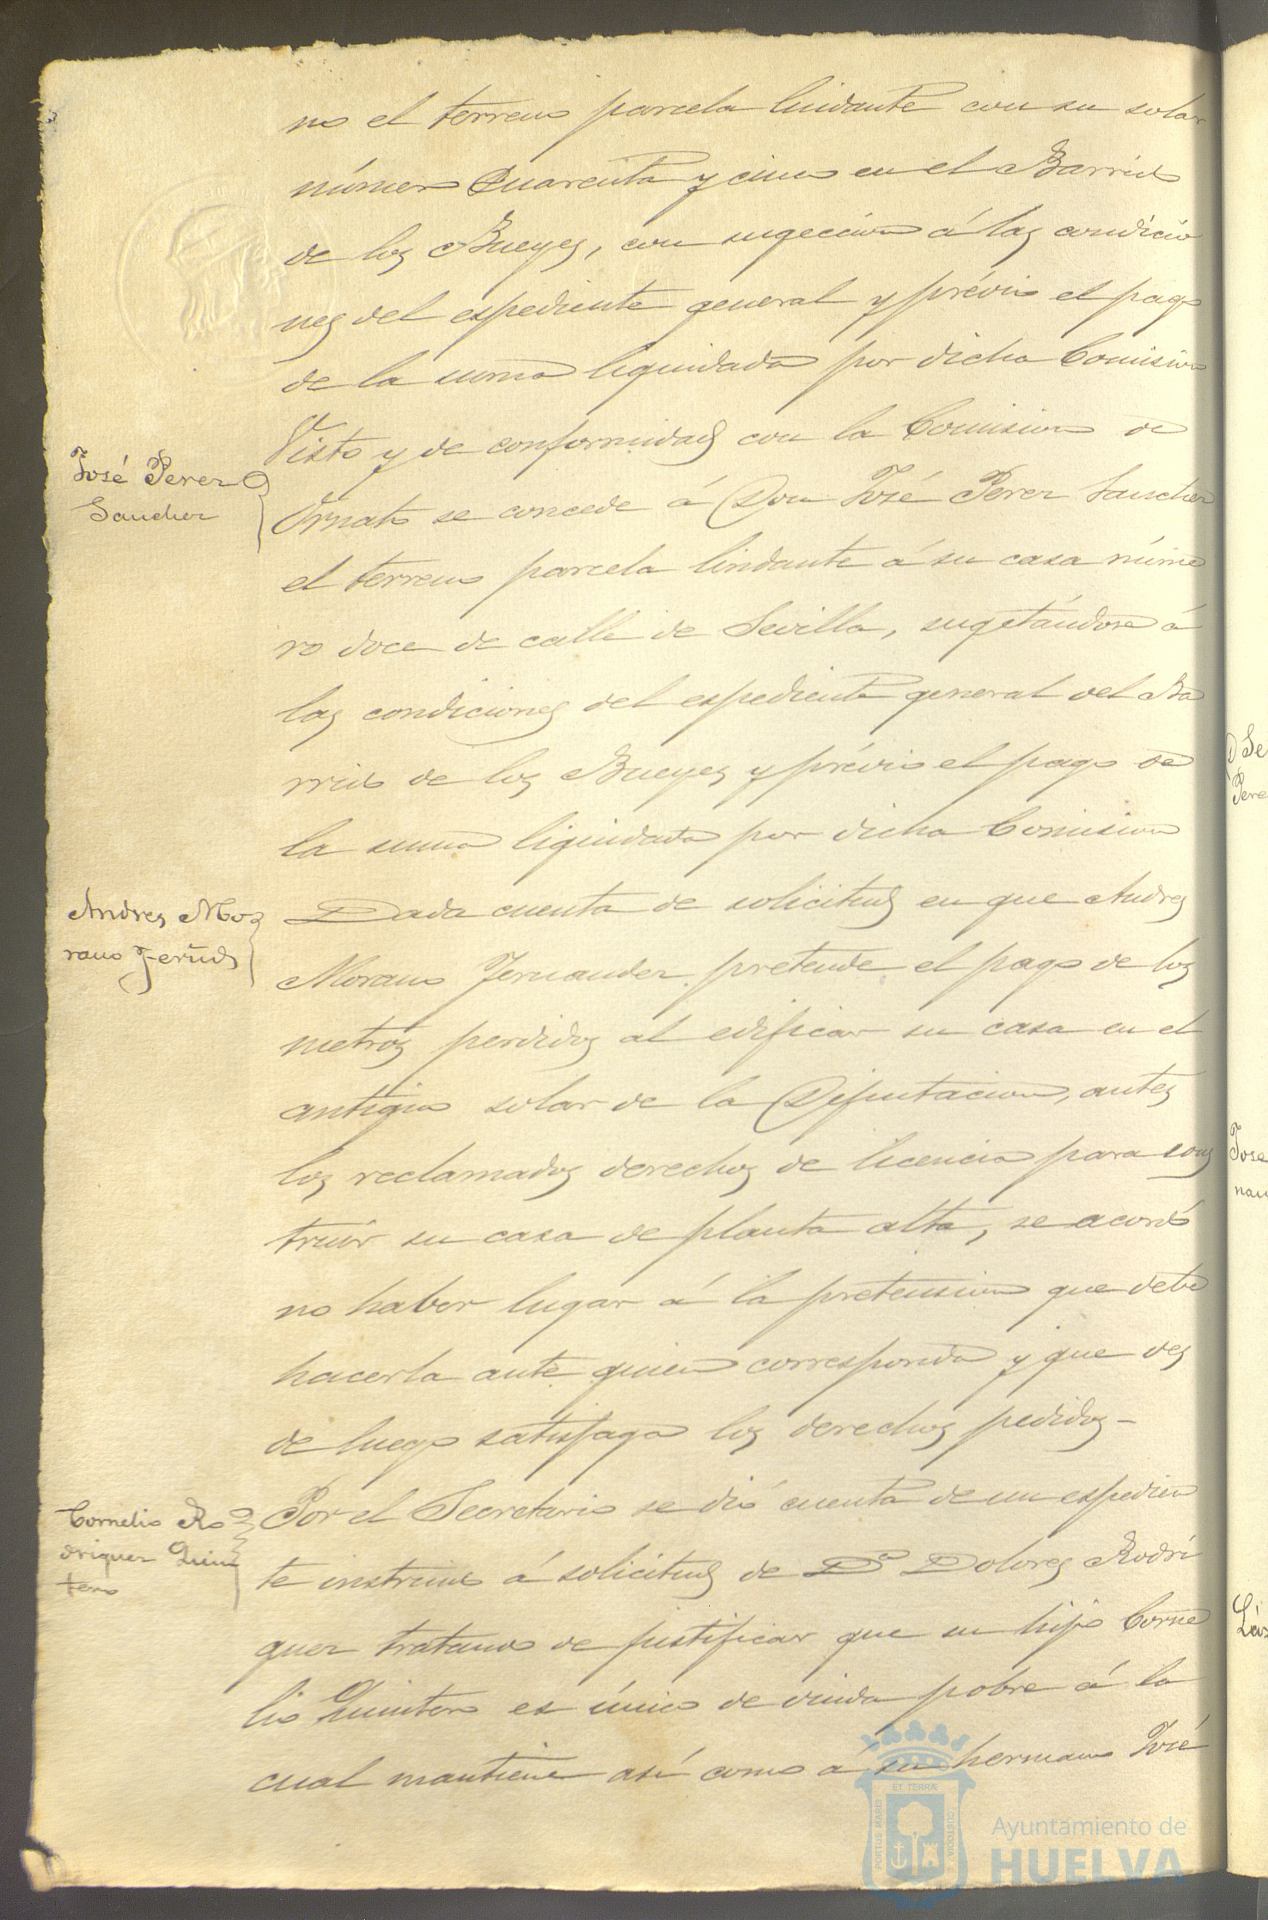 no el terreno parcela lindante con su solar
número Cuarenta y cinco en el Barrio
de los Bueyes, con sugeccion á las condicio
nes del espediente general y prévio el pago
de la suma liquidada por dicha Comision
José Perez
Sanchez
Visto y de conformidad con la Comision de
Ornato se concede á Don José Perez Sanchez
el terreno parcela lindante á su casa núme
ro doce de calle de Sevilla, sugetándose á
las condiciones del espediente general del Ba
rrio de los Bueyes y prévio el pago de
la suma liquidada por dicha Comision
Andres Mo
rano Fernds
Dada cuenta de solicitud en que Andres
Morano Fernandez pretende el pago de los
metros perdidos al edificar su casa en el
antiguo solar de la Diputacion, antes
los reclamados derechos de licencia para cons
truir su casa de planta alta, se acordó
no haber lugar á la pretension que debe
hacerla ante quien corresponda y que des
de luego satisfaga los derechos pedidos-
Cornelio Ro
driguez Quin
tero
Por el Secretario se dió cuenta de un espedien
te instruido á solicitud de Dª Dolores Rodri
guez tratando de justificar que su hijo Corne
lio Quintero es único de viuda pobre á la
cual mantiene asi como á su hermano José
D Se
Pere
Jose
nau
ET TERRÆ
PORTUS MARIS
CUSTODIA
Ayuntamiento de
HUELVA